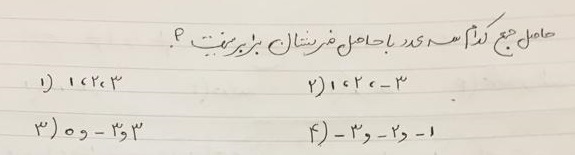 حاصل جمع کدام سه عدد با حاصل ضربشان برابر نیست ؟
۱) ۱، ۲، ۳ ۲) ۱، ۲، -۳
۳) ۰ و -۳ و ۳ ۴) -۳ و -۲ و -۱